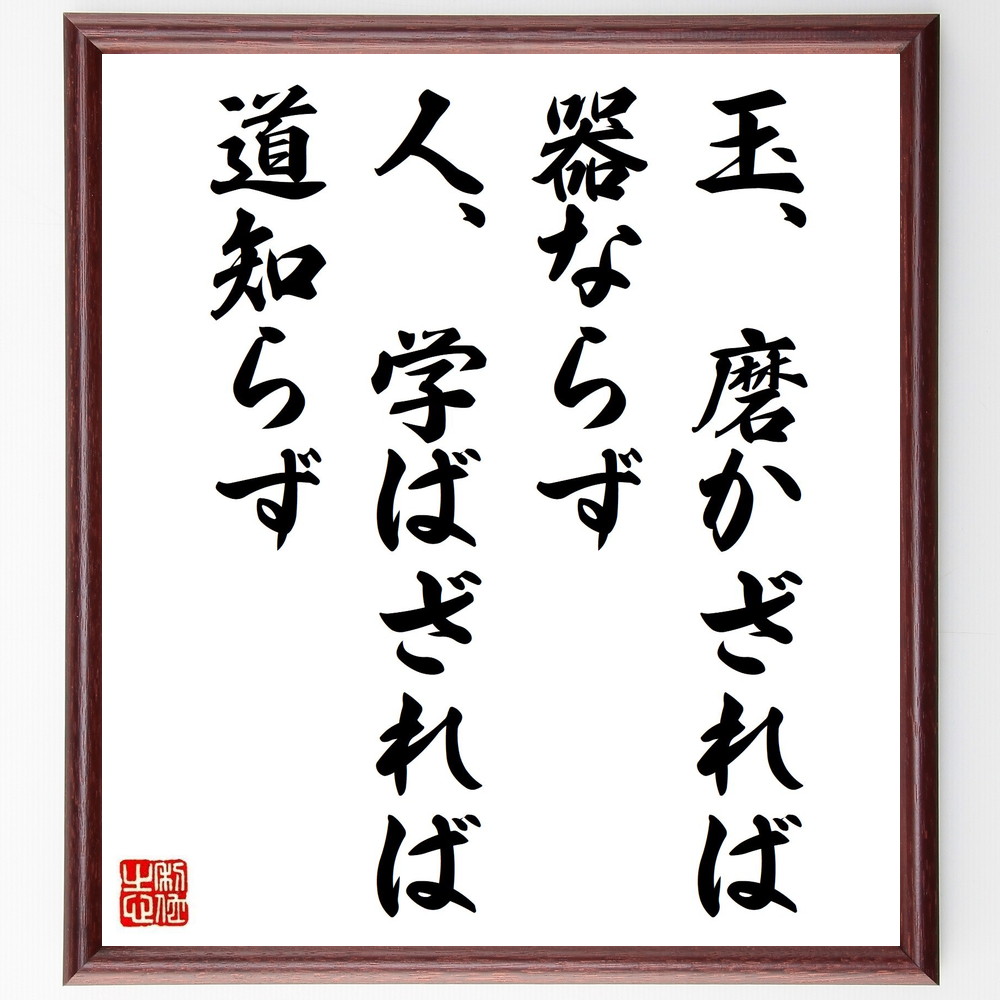 玉、　磨かざれば
器ならず
人、　学ばざれば
道知らず